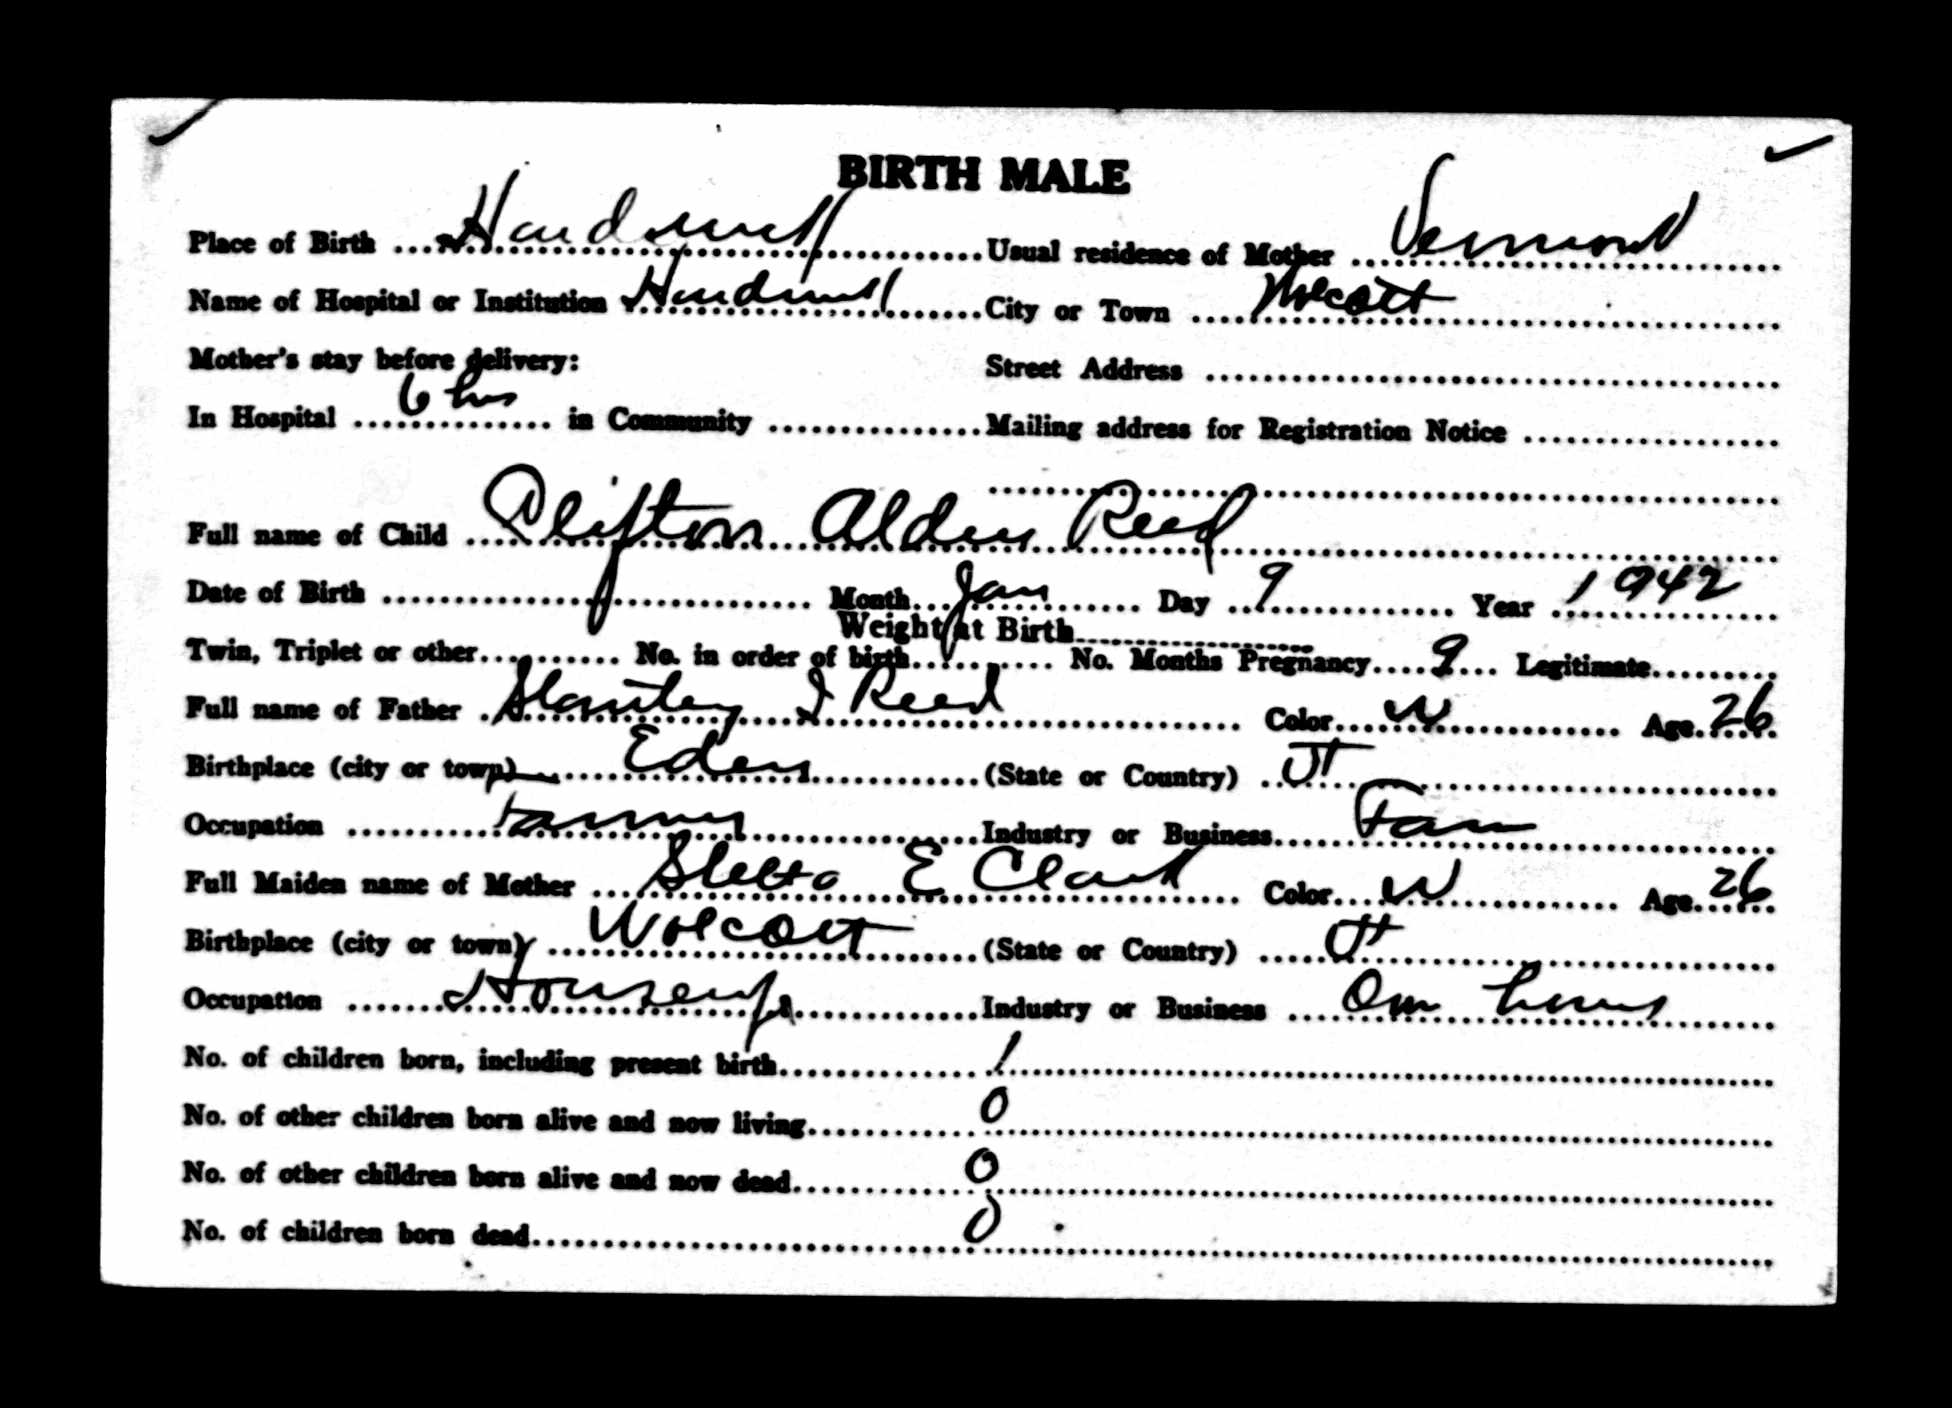 BIRTH MALE
Place of Birth Hardwick Usual residence of Mother Vermont
Name of Hospital or Institution Hardwick City or Town Wolcott
Mother's stay before delivery: Street Address
In Hospital 6 hrs in Community Mailing address for Registration Notice
Full name of Child Clifton Alden Reed
Date of Birth Month Jan Day 9 Year 1942
Weight at Birth
Twin, Triplet or other No. in order of birth No. Months Pregnancy 9 Legitimate
Full name of Father Stanley I Reed Color W Age 26
Birthplace (city or town) Eden (State or Country) Vt
Occupation Farmer Industry or Business Farm
Full Maiden name of Mother E Clark Color W Age 26
Birthplace (city or town) Wolcott (State or Country) Vt
Occupation Housewife Industry or Business Own home
No. of children born, including present birth 1
No. of other children born alive and now living 0
No. of other children born alive and now dead 0
No. of children born dead 0